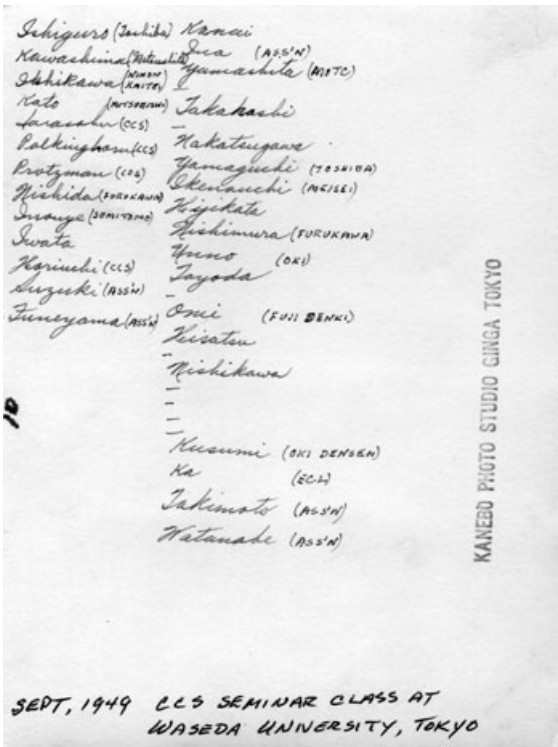 Ishiguro (Toshiba)
Kawashima (Matsushita)
Ishikawa (NIHON KAITEI)
Kato (MITSUBISHI)
Sarasohn (CCS)
Polkinghorn (CCS)
Protzman (CCS)
Nishida (FURUKAWA)
Inouye (SUMITOMO)
Iwata
Horiuchi (CCS)
Suzuki (ASS'N)
Funeyama (ASS'N)
Kanai
Ina (ASS'N)
Yamashita (MOTC)
–
Takahashi
–
Nakatsugawa
Yamaguchi (TOSHIBA)
Ikenouchi (MEISEI)
Hijikata
Nishimura (FURUKAWA)
Unno (OKI)
Toyoda
–
Omi (FUJI DENKI)
Hisatsu
–
Nishikawa
–
–
–
–
Kusumi (OKI DENSEN)
Ka (ECL)
Takimoto (ASS'N)
Watanabe (ASS'N)
KANEBO PHOTO STUDIO GINGA TOKYO
SEPT, 1949 CCS SEMINAR CLASS AT
WASEDA UNIVERSITY, TOKYO